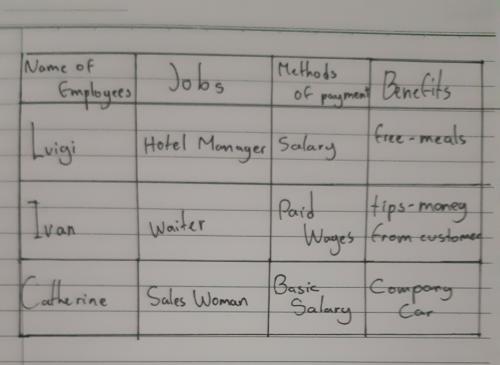 Name of Employees | Jobs | Methods of payment | Benefits
Luigi | Hotel Manager | Salary | free-meals
Ivan | Waiter | Paid Wages | tips-money from customer
Catherine | Sales Woman | Basic Salary | Company Car